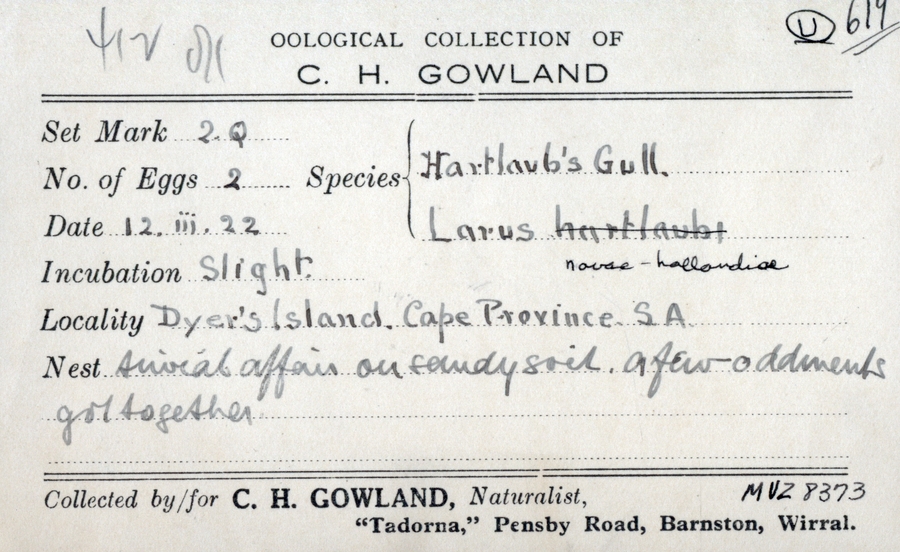 U 619
OOLOGICAL COLLECTION OF
C. H. GOWLAND
Set Mark 2.Q
No. of Eggs 2 Species Hartlaub's Gull.
Date 12. iii. 22 Larus hartlaubi
novae-hollandiae
Incubation Slight.
Locality Dyer's Island. Cape Province. S A.
Nest trivial affair on sandy soil. a few oddments
got together
Collected by/for C. H. GOWLAND, Naturalist,
MVZ 8373
"Tadorna," Pensby Road, Barnston, Wirral.